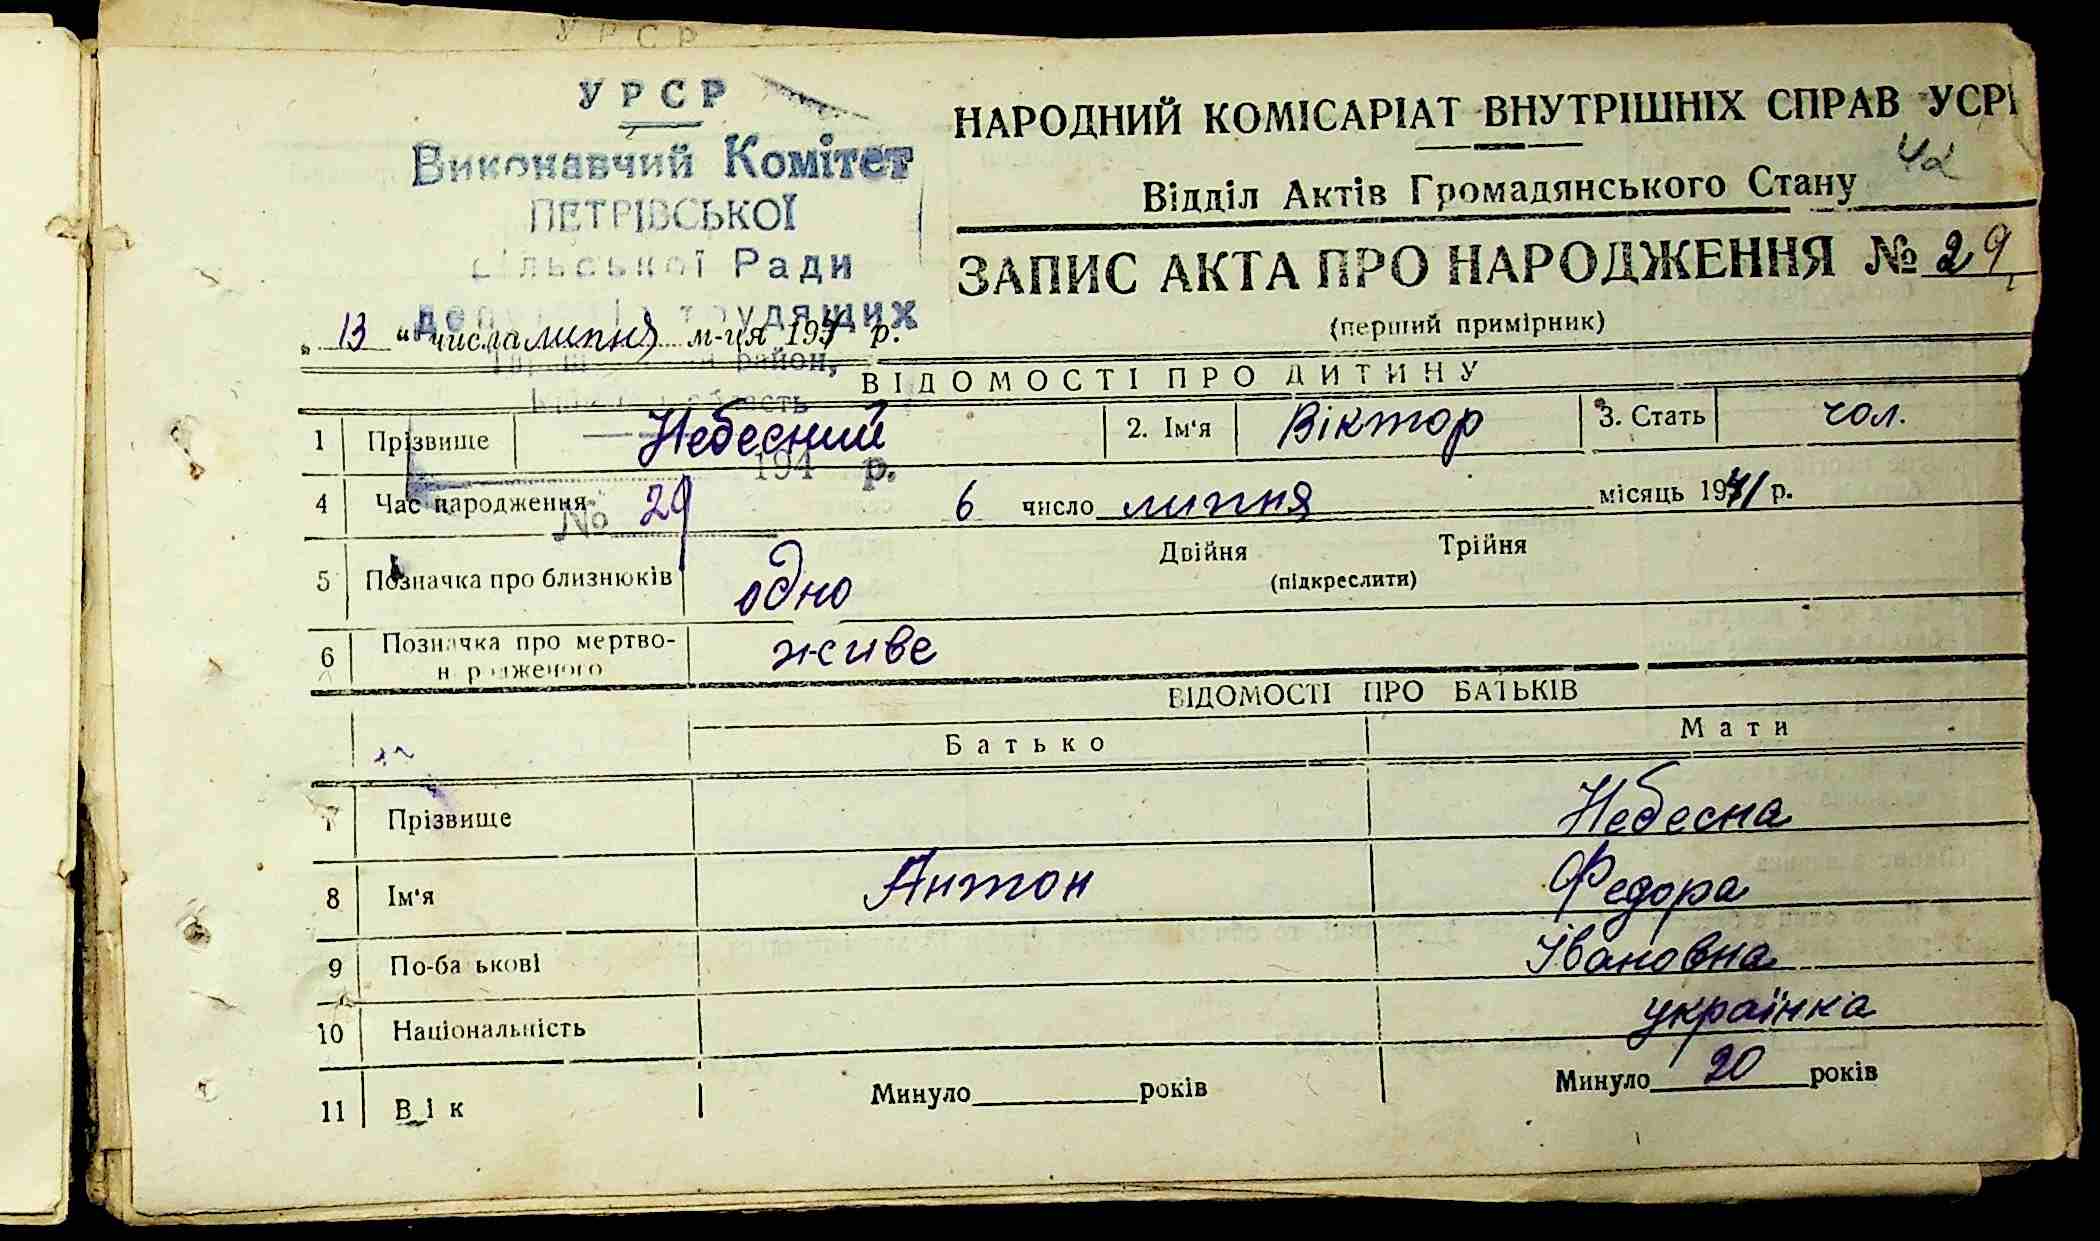 УРСР
УРСР
Виконавчий Комітет
ПЕТРІВСЬКОЇ
сільської Ради
депутатів трудящих
район,
область
194 р.
№ 29
НАРОДНИЙ КОМІСАРІАТ ВНУТРІШНІХ СПРАВ УСРР
42
Відділ Актів Громадянського Стану
ЗАПИС АКТА ПРО НАРОДЖЕННЯ № 29
(перший примірник)
„ 13 “ числа липня м-ця 194 р.
ВІДОМОСТІ ПРО ДИТИНУ
1 Прізвище Небесний 2. Ім'я Віктор 3. Стать чол.
4 Час народження 6 число липня місяць 1941 р.
Двійня Трійня
5 Позначка про близнюків одно (підкреслити)
6 Позначка про мертво- живе
народженого
ВІДОМОСТІ ПРО БАТЬКІВ
Батько Мати
7 Прізвище Небесна
8 Ім'я Антон Федора
9 По-батькові Івановна
10 Національність українка
11 Вік Минуло років Минуло 20 років